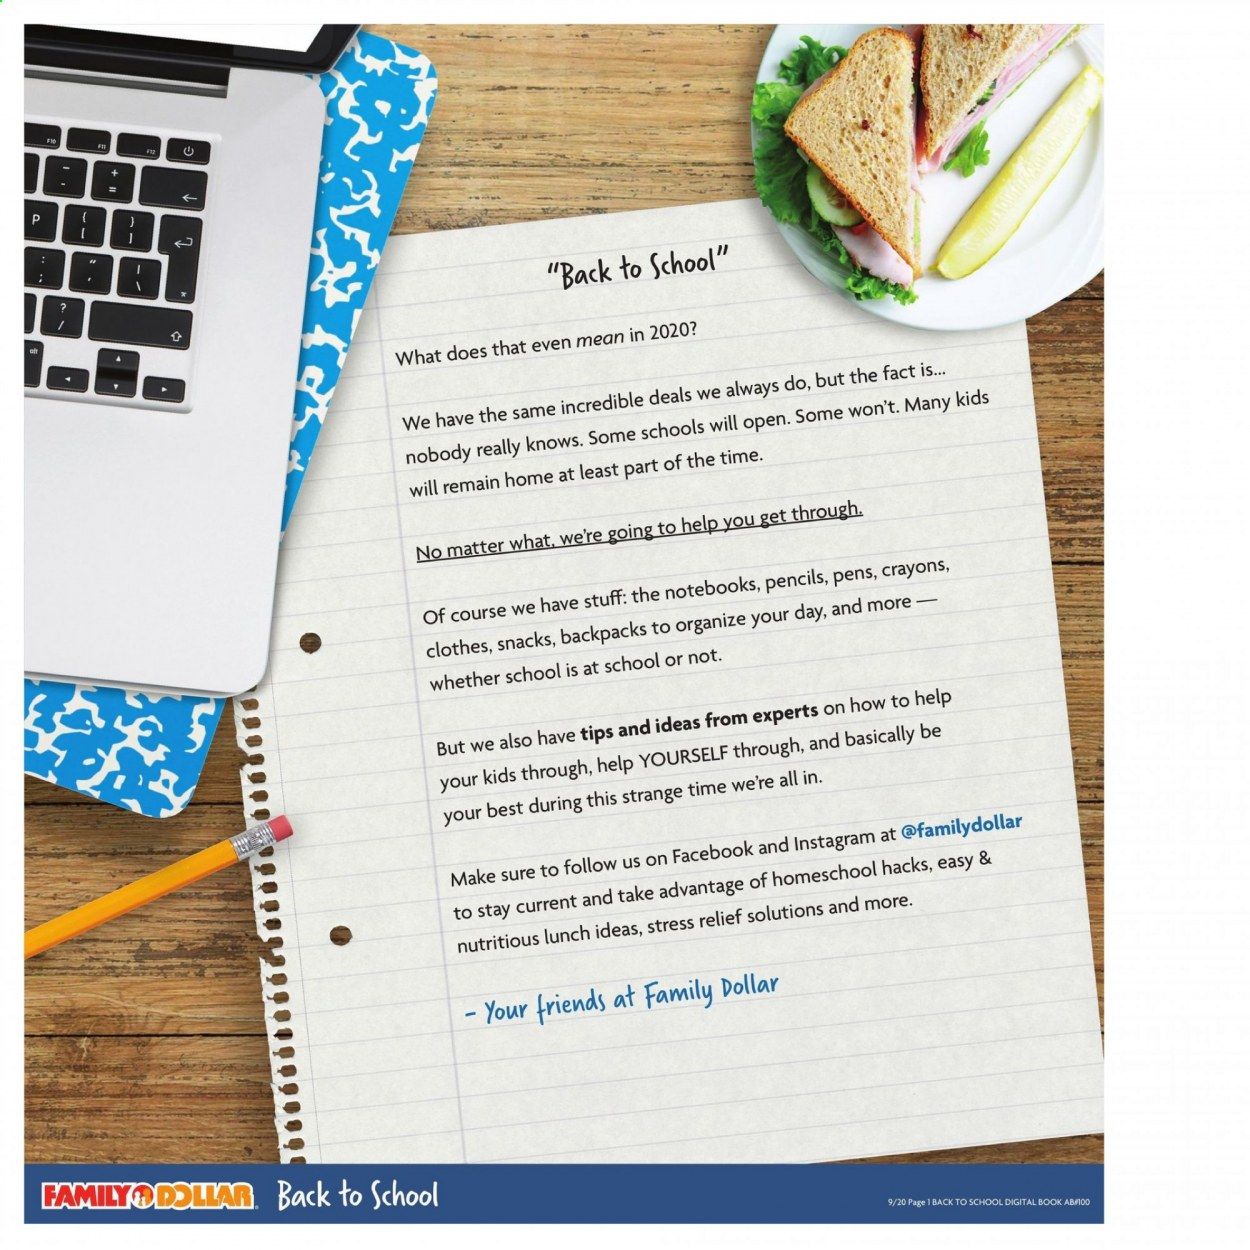 F10 F11 F12
- +
_ =
P { }
[ ]
: " |
; ' \
? 
/
alt
"Back to School"
What does that even mean in 2020?
We have the same incredible deals we always do, but the fact is...
nobody really knows. Some schools will open. Some won't. Many kids
will remain home at least part of the time.
No matter what, we're going to help you get through.
Of course we have stuff: the notebooks, pencils, pens, crayons,
clothes, snacks, backpacks to organize your day, and more —
whether school is at school or not.
But we also have tips and ideas from experts on how to help
your kids through, help YOURSELF through, and basically be
your best during this strange time we're all in.
Make sure to follow us on Facebook and Instagram at @familydollar
to stay current and take advantage of homeschool hacks, easy &
nutritious lunch ideas, stress relief solutions and more.
- Your friends at Family Dollar
FAMILY DOLLAR Back to School
9/20 Page 1 BACK TO SCHOOL DIGITAL BOOK AB#100